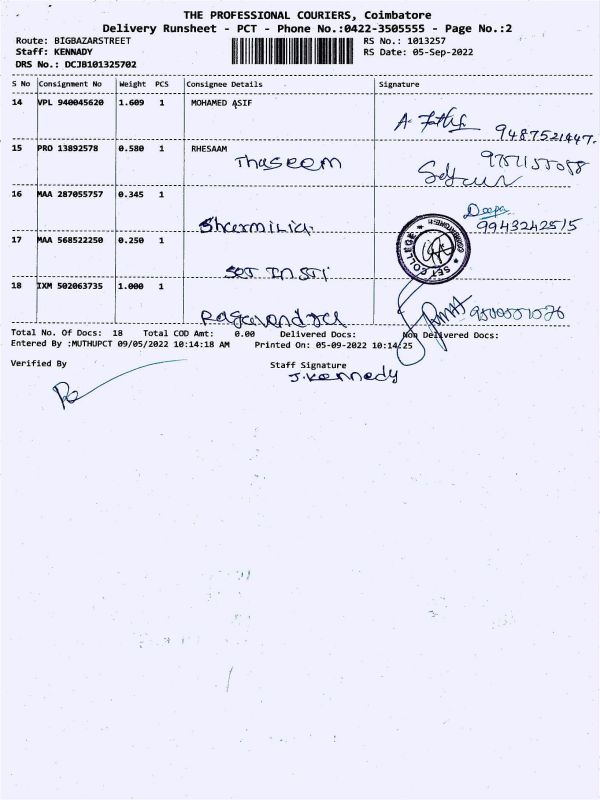 THE PROFESSIONAL COURIERS, Coimbatore
Delivery Runsheet - PCT - Phone No.:0422-3505555 - Page No.:2
Route: BIGBAZARSTREET RS No.: 1013257
Staff: KENNADY RS Date: 05-Sep-2022
DRS No.: DCJB101325702
S No Consignment No Weight PCS Consignee Details Signature
14 VPL 940045620 1.609 1 MOHAMED ASIF
9487521447.
15 PRO 13892578 0.580 1 RHESAAM
Thaseem
16 MAA 287055757 0.345 1
Deepa
Sharmilia 9943242515
17 MAA 568522250 0.250 1
SET COLLEGE
SET INSTI
18 IXM 502063735 1.000 1
Total No. Of Docs: 18 Total COD Amt: 0.00 Delivered Docs: Non Delivered Docs:
Entered By :MUTHUPCT 09/05/2022 10:14:18 AM Printed On: 05-09-2022 10:14:25
Verified By Staff Signature
J.Kennedy